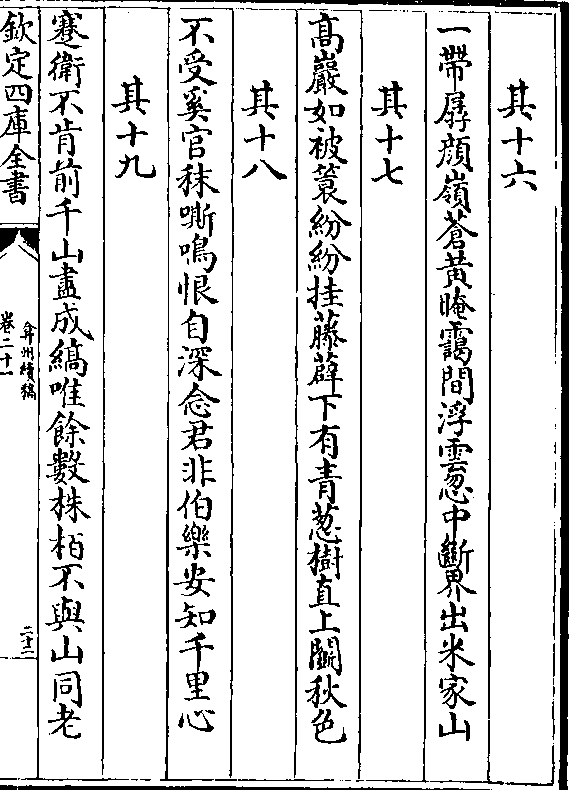 其十六
一帶孱顔嶺蒼黄晻靄間浮雲忽中斷界出米家山
其十七
髙巖如被蓑紛紛挂藤薜下有青葱樹直上鬭秋色
其十八
不受奚官秣嘶鳴恨自深念君非伯樂安知千里心
其十九
蹇衛不肯前千山盡成縞唯餘數株柏不與山同老
欽定四庫全書
弇州續稿
卷二十一
二十二